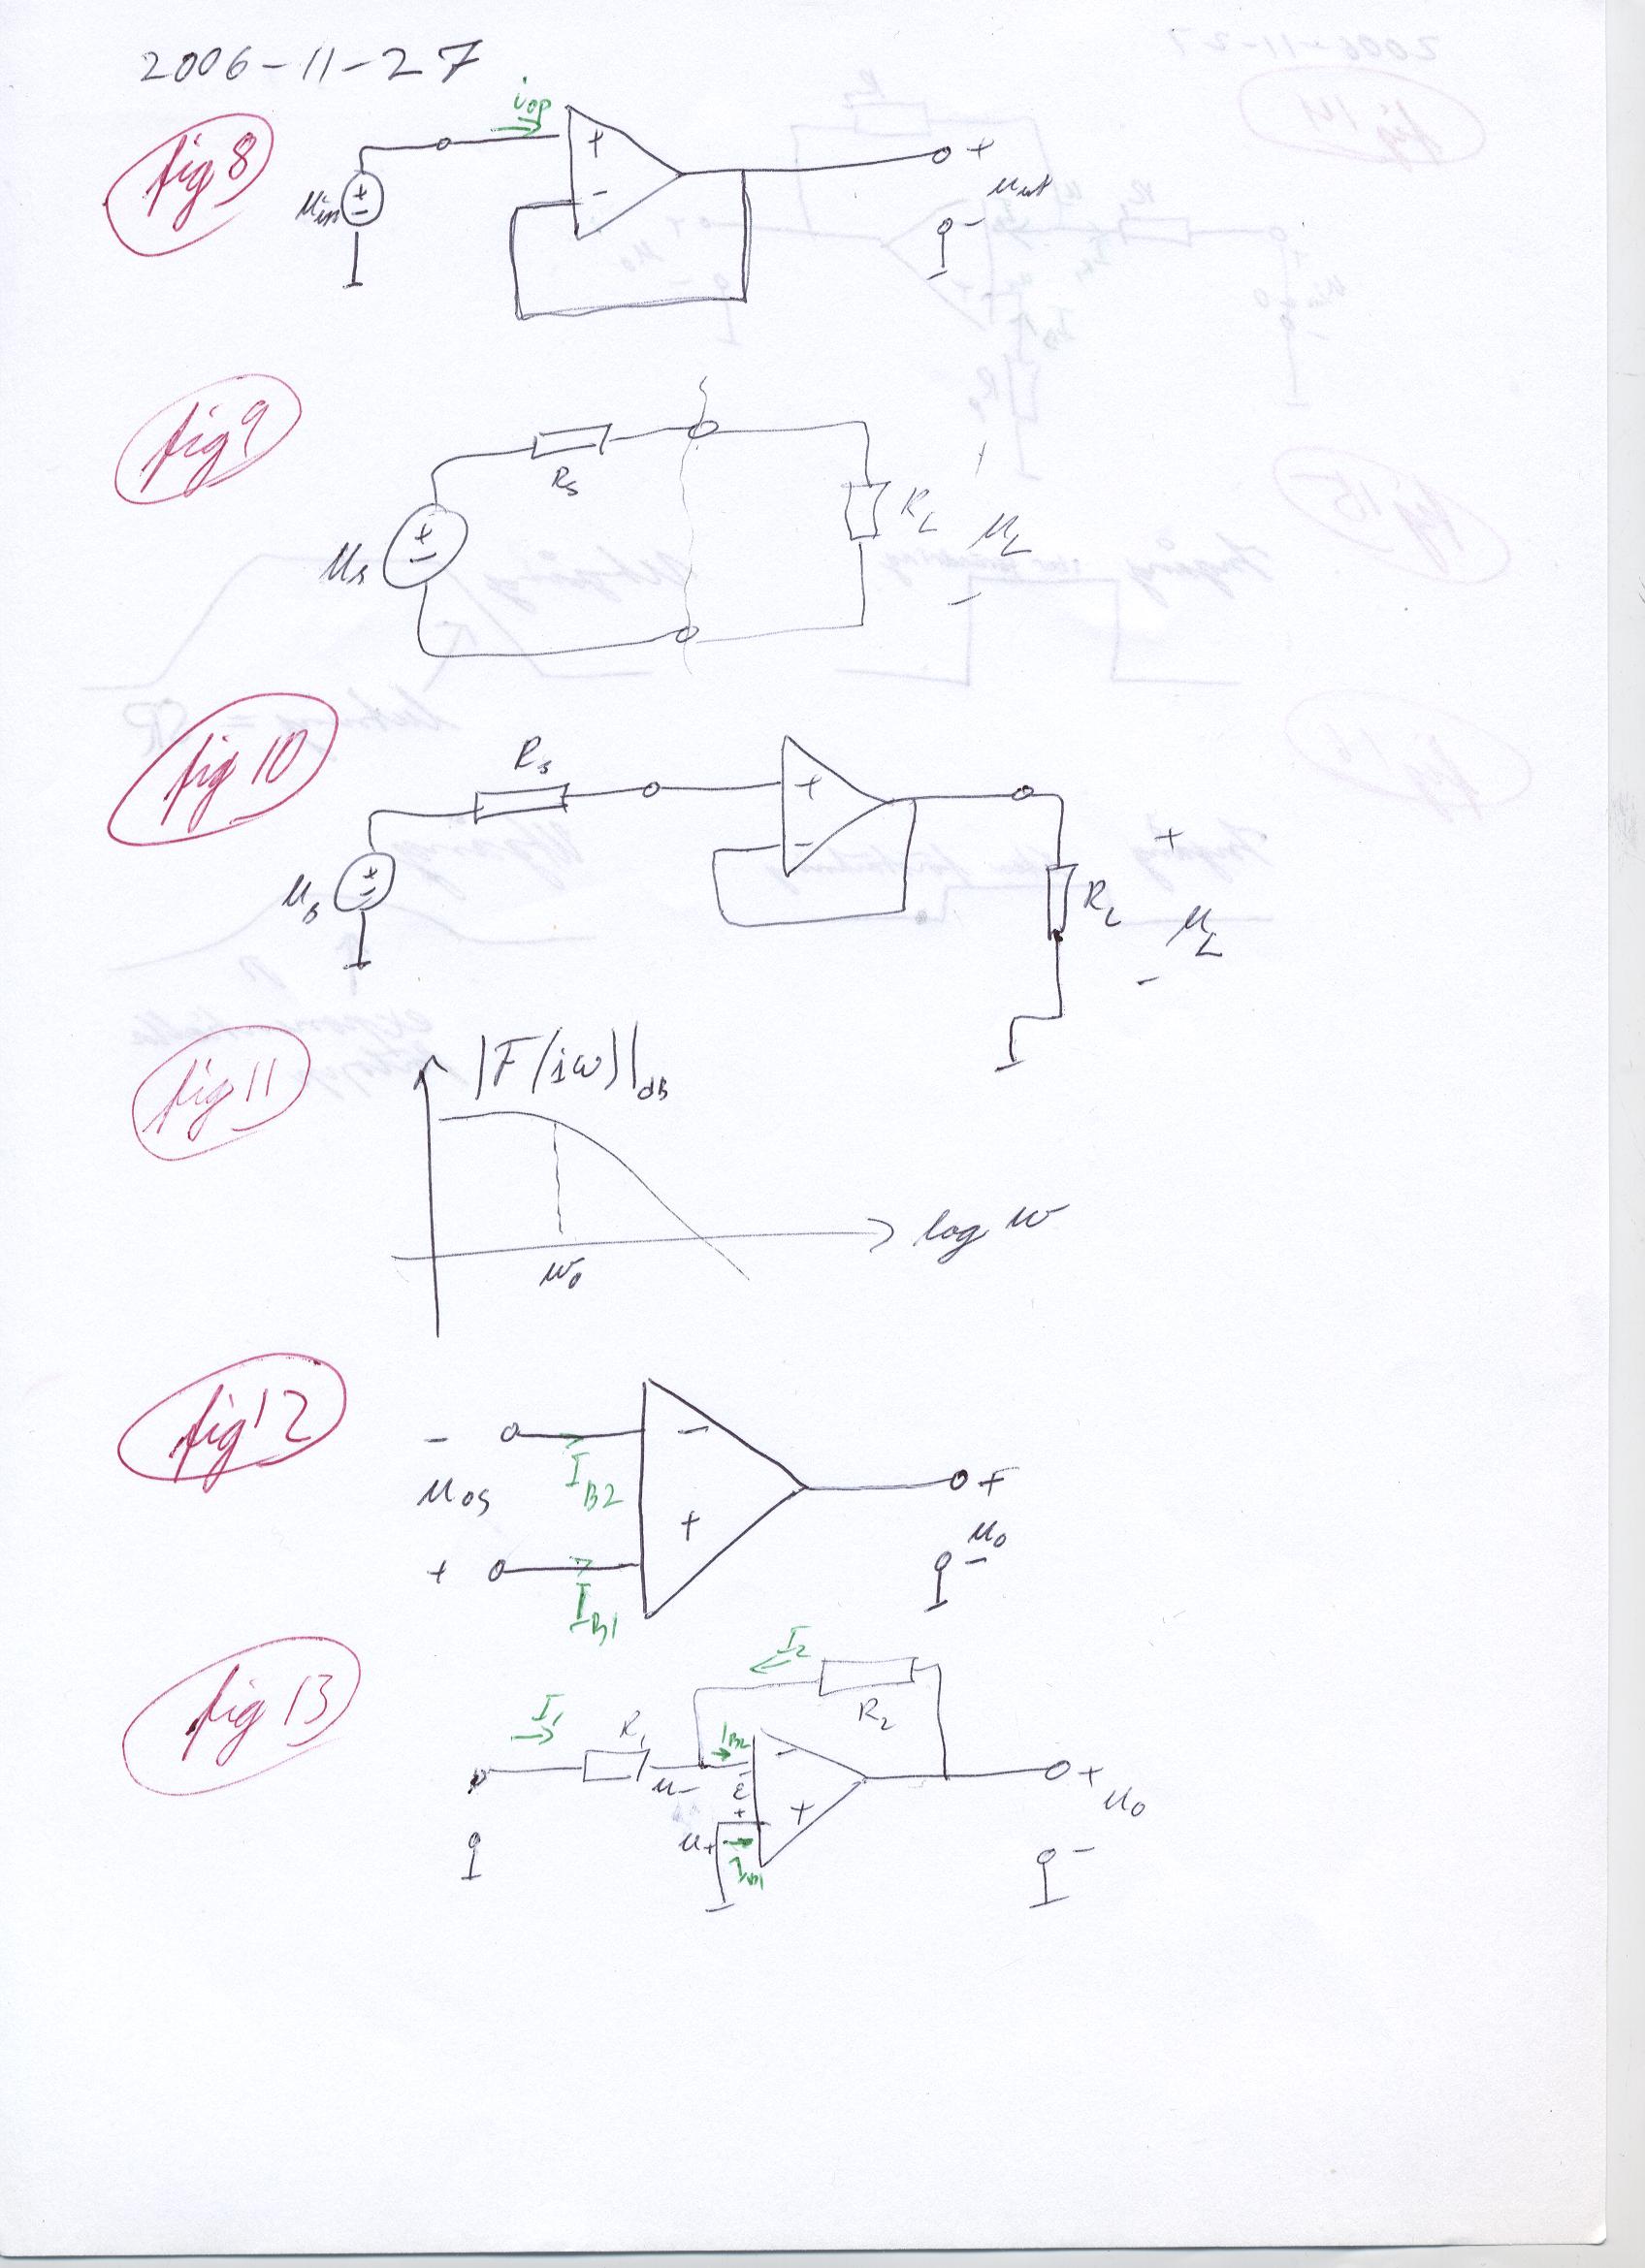 2006-11-27
fig 8
iop
uin
+
-
+
-
+
uut
-
fig 9
Rs
us
+
-
RL
+
uL
-
fig 10
Rs
us
+
-
+
-
RL
+
uL
-
fig 11
|F(iω)|dB
log ω
ω0
fig 12
-
uos
+
IB2
IB1
-
+
+
u0
-
fig 13
I1
I2
R1
R2
u-
IB2
-
ε
+
u+
IB1
-
+
+
u0
-